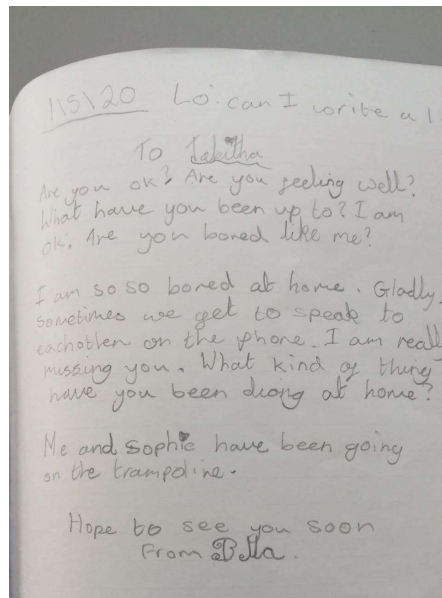 1\5\20 Lo: can I write a l
To Tabitha
Are you ok? Are you feeling well?
What have you been up to? I am
ok. Are you bored like me?
I am so so bored at home. Gladly,
sometimes we get to speak to
eachother on the phone. I am really
missing you. What kind of thing
have you been diong at home?
Me and Sophie have been going
on the trampoline.
Hope to see you soon
From Bella.